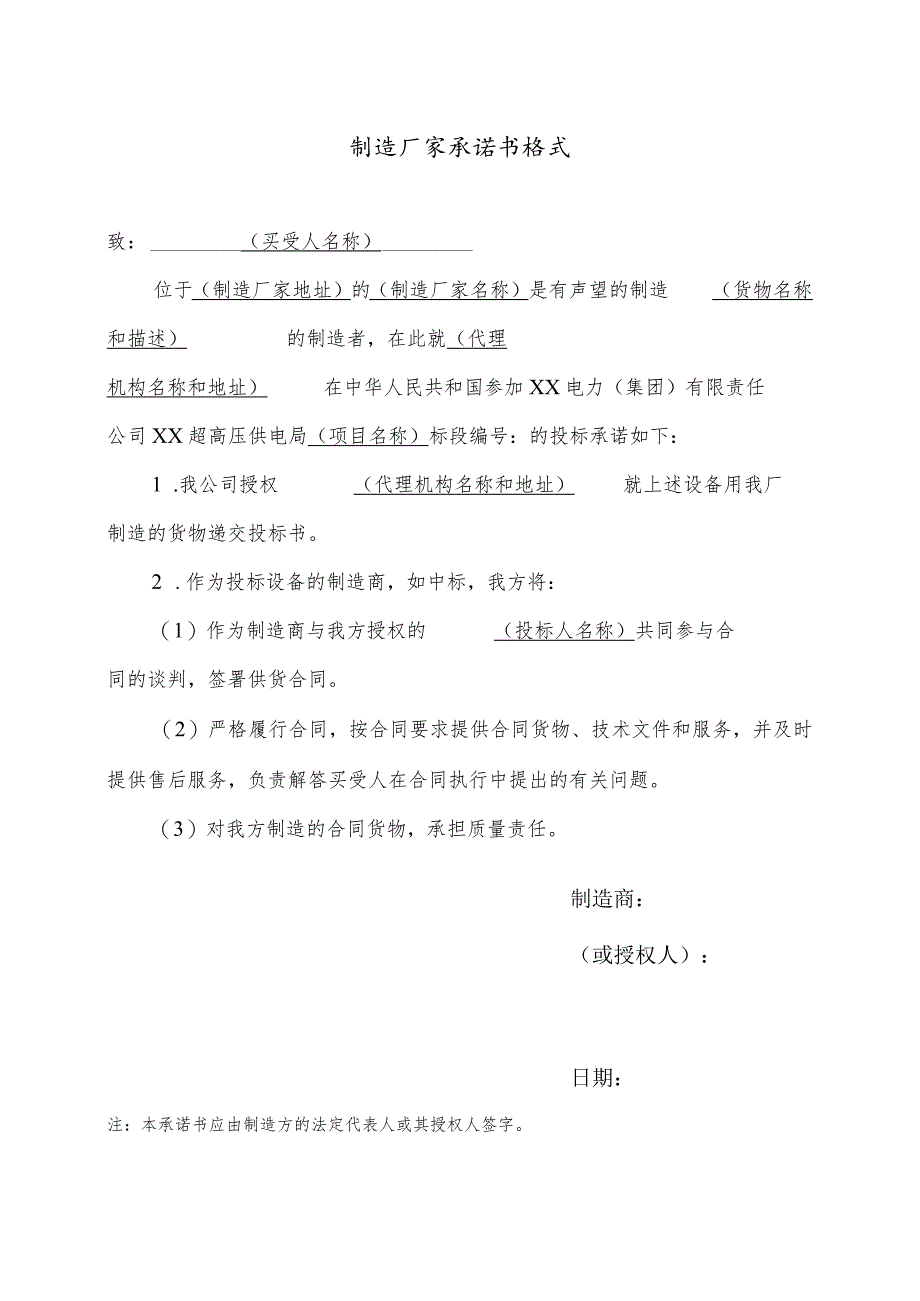 制造厂家承诺书格式
致：_________（买受人名称）_________
位于（制造厂家地址）的（制造厂家名称）是有声望的制造 （货物名称
和描述） 的制造者，在此就（代理
机构名称和地址） 在中华人民共和国参加XX电力（集团）有限责任
公司XX超高压供电局（项目名称）标段编号：的投标承诺如下：
1 .我公司授权 （代理机构名称和地址） 就上述设备用我厂
制造的货物递交投标书。
2 .作为投标设备的制造商，如中标，我方将：
（1）作为制造商与我方授权的 （投标人名称）共同参与合
同的谈判，签署供货合同。
（2）严格履行合同，按合同要求提供合同货物、技术文件和服务，并及时
提供售后服务，负责解答买受人在合同执行中提出的有关问题。
（3）对我方制造的合同货物，承担质量责任。
制造商：
（或授权人）：
日期：
注：本承诺书应由制造方的法定代表人或其授权人签字。